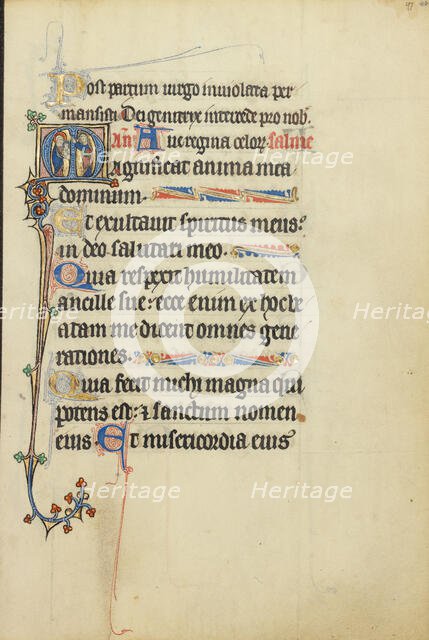 97
Post partum virgo inviolata per
mansisti Dei genitrix intercede pro nob.
An Ave regina celor. salme
Magnificat anima mea
dominum.
Et exultavit spiritus meus:
in deo salutari meo.
Quia respexit humilitatem
ancille sue: ecce enim ex hoc be
atam me dicent omnes gene
rationes.
Quia fecit michi magna qui
potens est: et sanctum nomen
eius. Et misericordia eius
Heritage
Heritage
Heritage
Heritage
Heritage
Heritage
Heritage
Heritage
Heritage